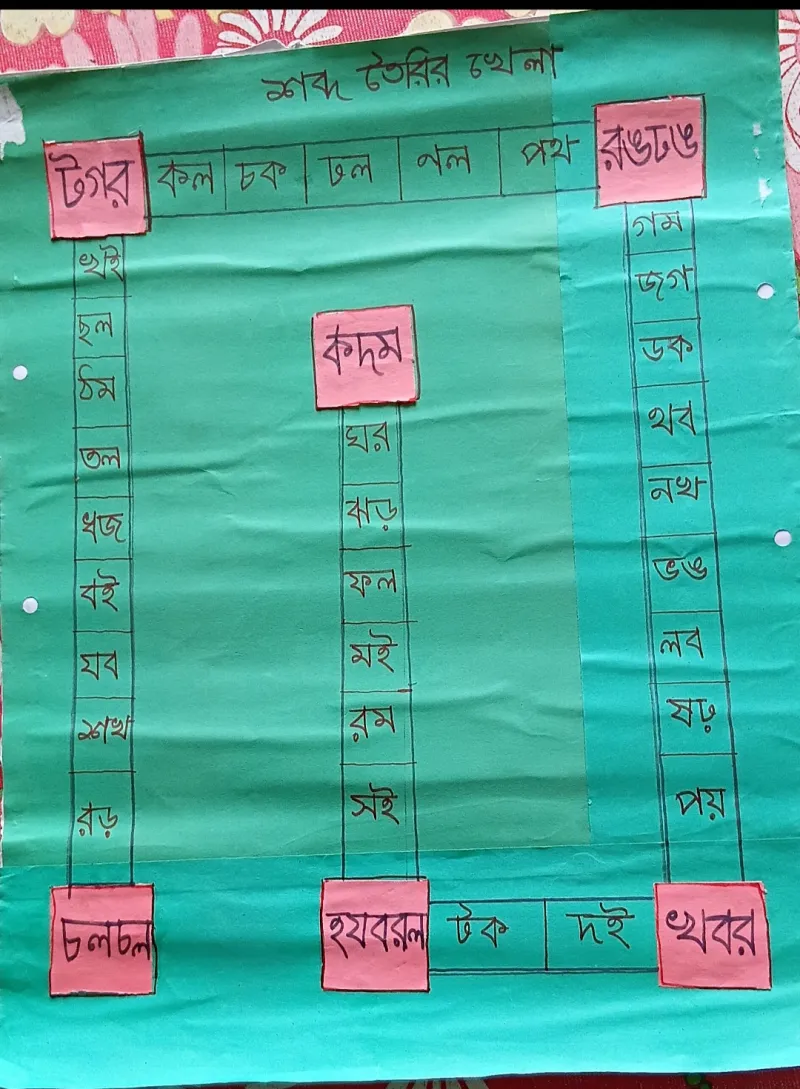 শব্দ তৈরির খেলা
টগর কল চক ঢল নল পথ রঙঢঙ
খই
ছল
ঠম
তল
ধজ
বই
যব
শখ
রড়
চলচল
কদম
ঘর
ঝড়
ফল
মই
রম
সই
হযবরল টক দই খবর
গম
জগ
ডক
থব
নখ
ভঙ
লব
ষঢ়
পয়